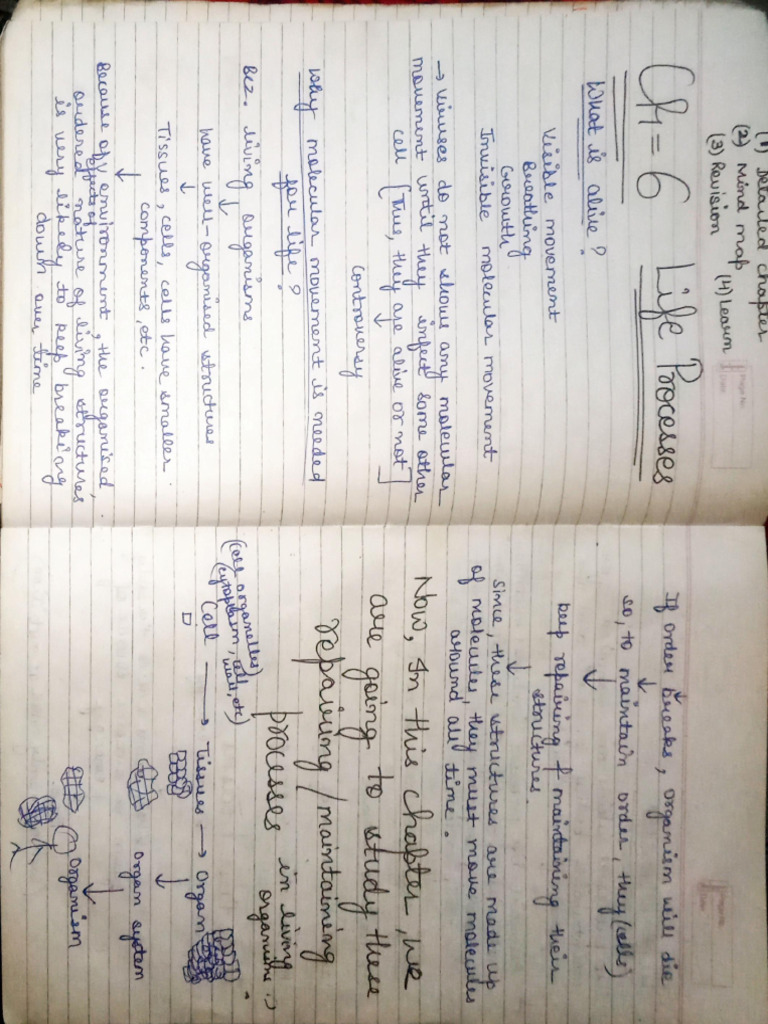 (1) Detailed chapter
(2) Mind map (4) Learn
(3) Revision
CH = 6 Life Processes
What is alive?
Visible movement
Breathing
Growth
Invisible molecular movement
→ Viruses do not shows any molecular
movement until they infect some other
cell [True, they are alive or not]
↓
Controversy
Why molecular movement is needed
for life?
Bcz. living organisms
↓
have well-organised structures
↓
Tissues, cells, cells have smaller
components, etc.
↓
Because of effects of environment, the organised,
ordered nature of living structures
is very likely to keep breaking
down over time
If order breaks, organism will die
↓
so, to maintain order, they (cells)
↓
keep repairing & maintaining their
structures.
↓
Since, these structures are made up
of molecules, they must move molecules
around all time.
Now, In this chapter, we
are going to study these
repairing / maintaining
processes in living
organisms :)
(cell organelles)
(cytoplasm, cell
wall, etc)
Cell → Tissues → Organ
↓
Organ system
↓
Organism